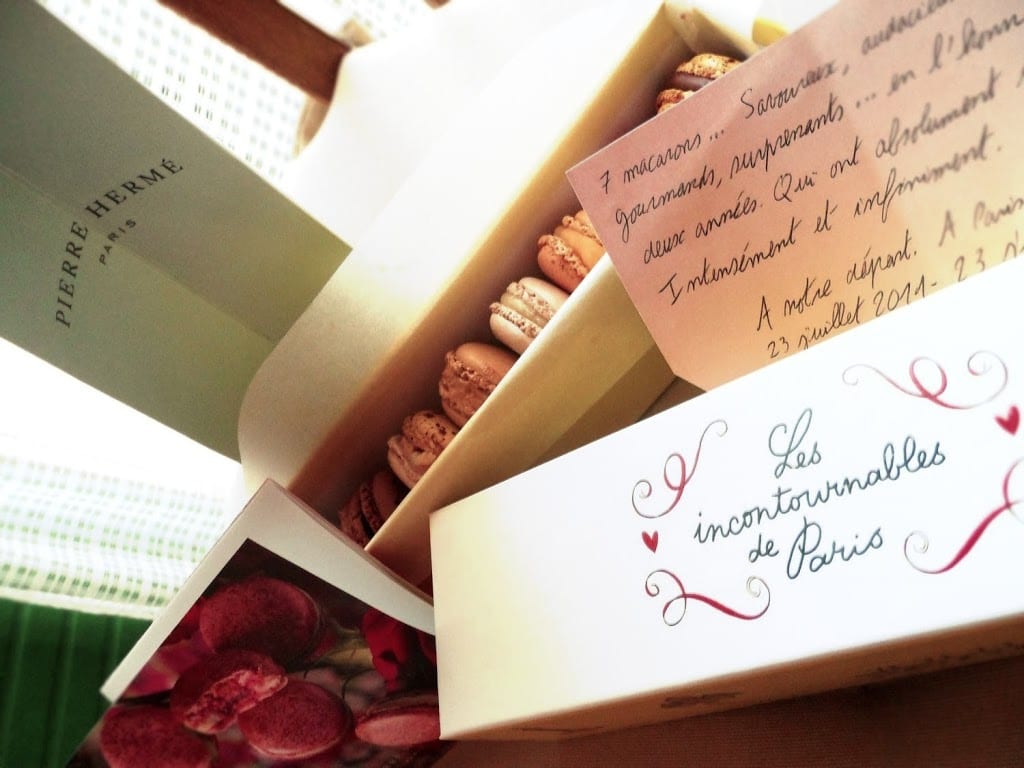 PIERRE HERMÉ
PARIS
7 macarons... Savoureux,
gourmands, surprenants... en l'honn
deux années. Qui ont absolument
Intensément et infiniment.
A notre départ. A Paris
23 juillet 2011- 23
Les
incontournables
de Paris